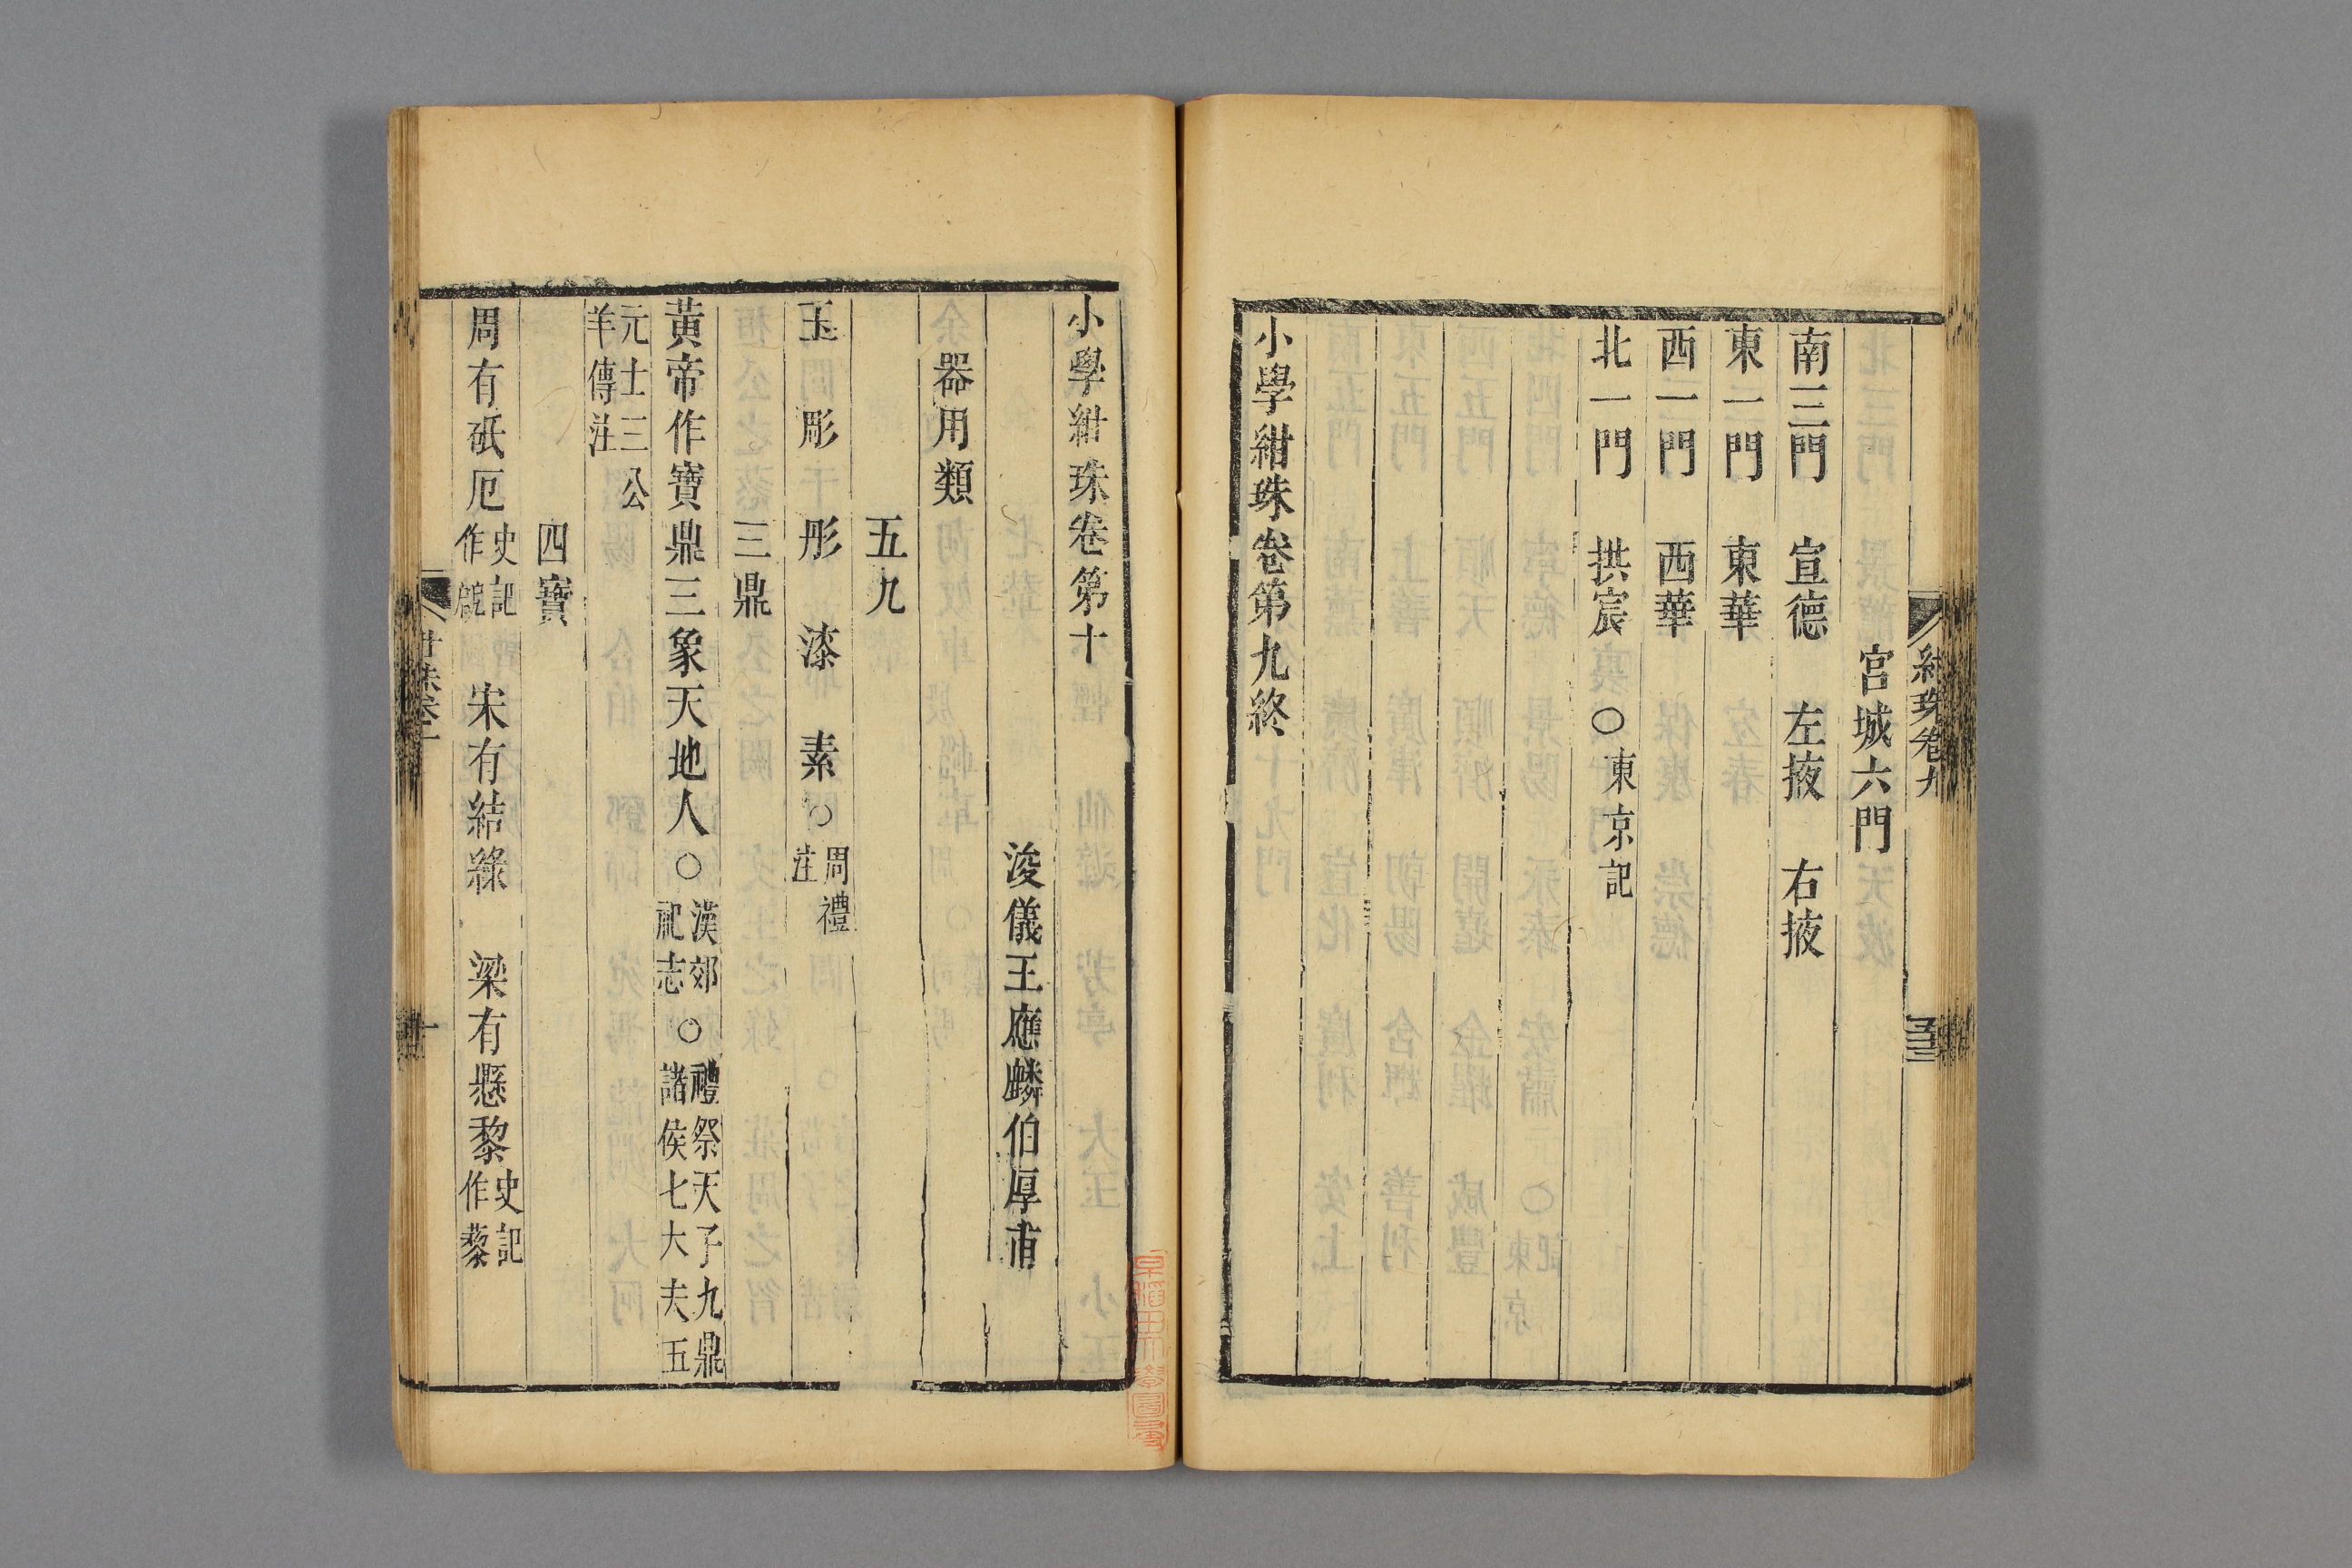 紺珠卷九
宮城六門
南三門 宣德 左掖 右掖
東一門 東華
西一門 西華
北一門 拱宸〇東京記
小學紺珠卷第九終
小學紺珠卷第十
浚儀王應麟伯厚甫
器用類
五几
玉 彫 彤 漆 素〇周禮
注
三鼎
黃帝作寶鼎三象天地人〇漢郊
祀志〇禮祭天子九鼎
諸侯七大夫五
元士三公
羊傳注
四寶
周有砥厄史記
作䂮 宋有結綠 梁有懸黎史記
作藜
早稻田大學圖書